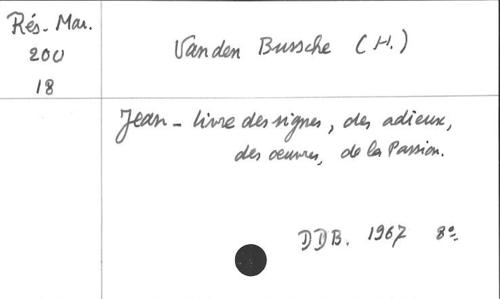 Rés. Mar.
200
18
Vanden Bussche (H.)
Jean - livre des signes, des adieux,
des oeuvres, de la Passion.
DDB. 1967 8º